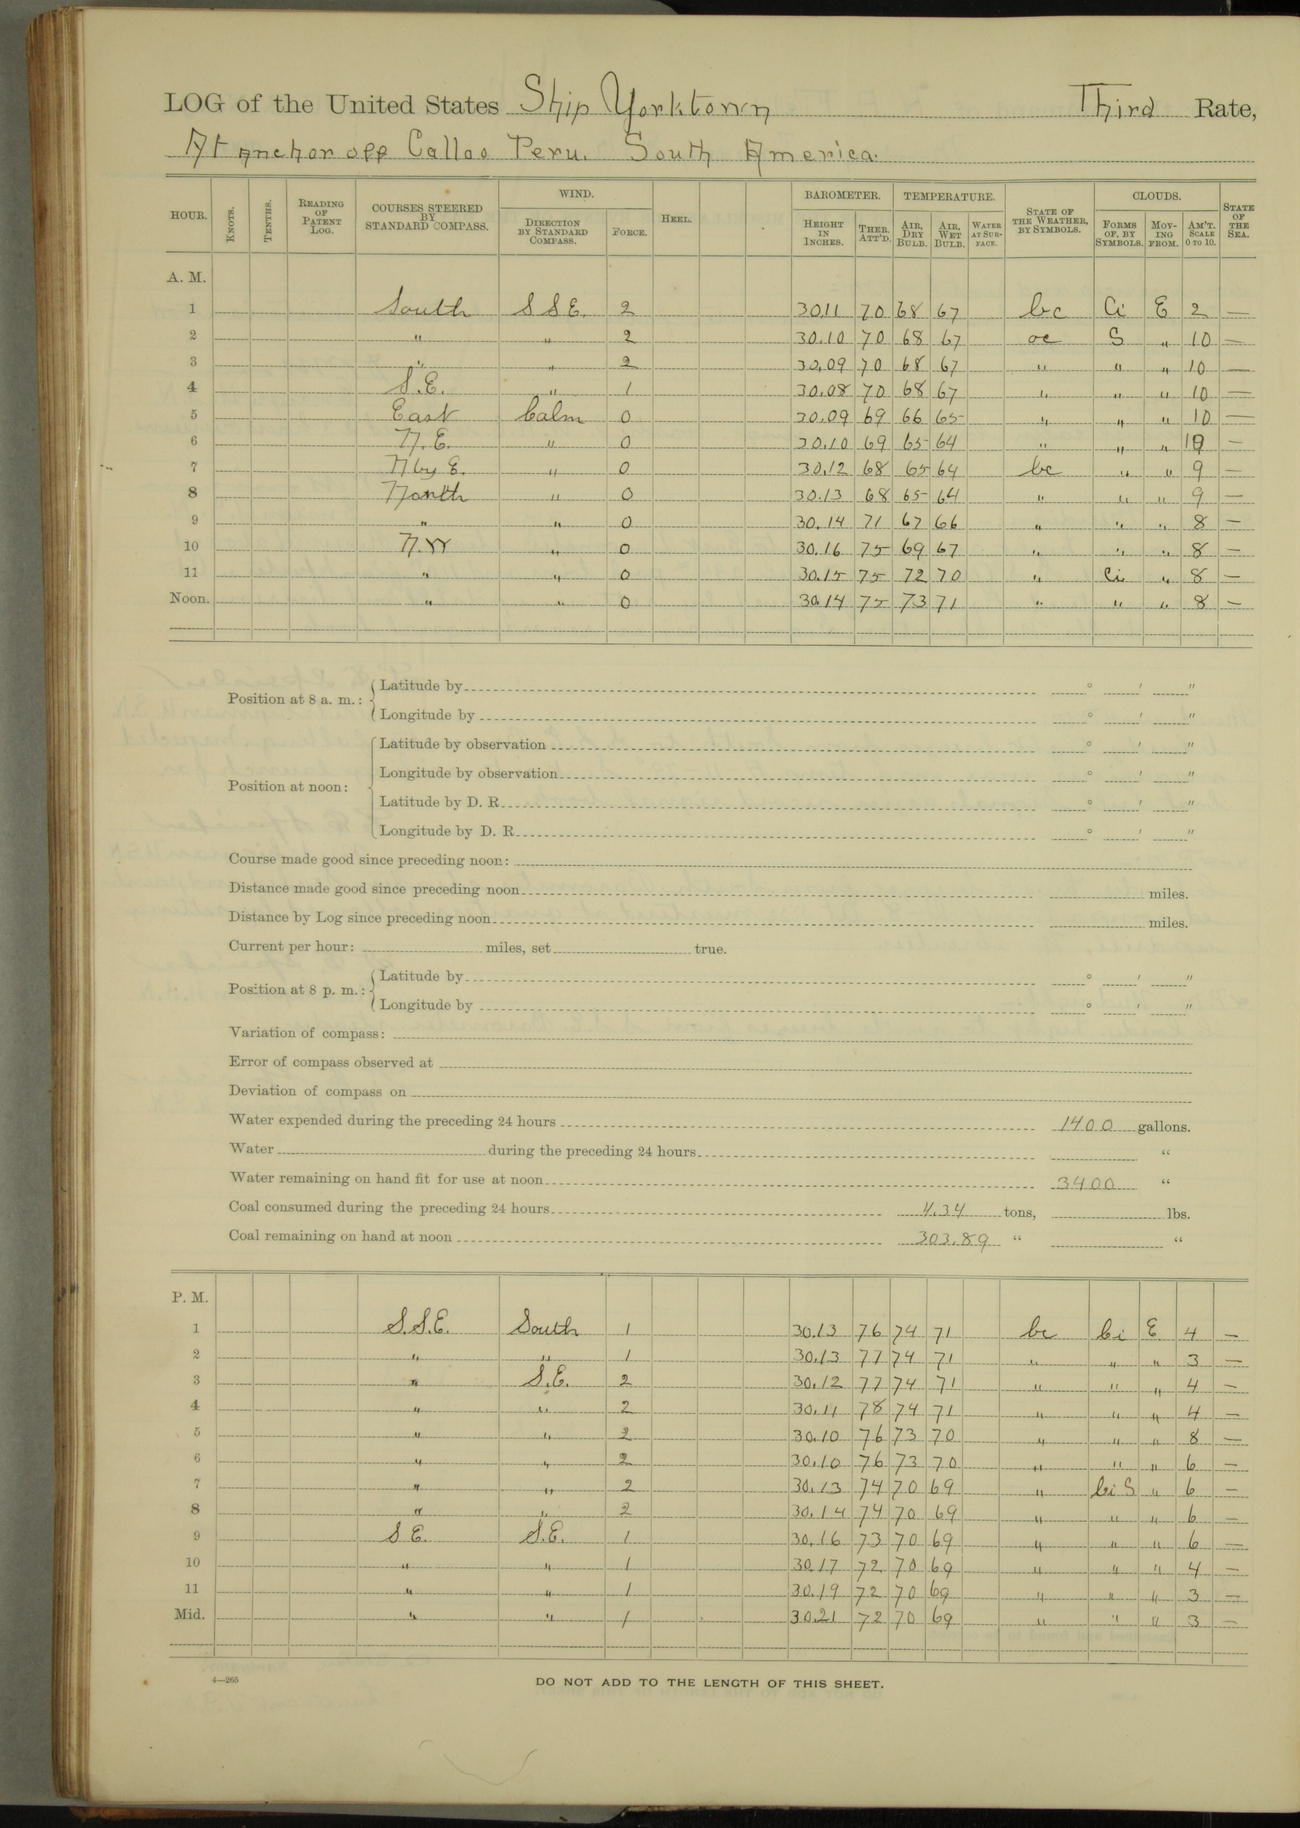 LOG of the United States Ship Yorktown Third Rate,
At anchor off Callao Peru. South America.
HOUR. KNOTS. TENTHS. READING OF PATENT LOG. COURSES STEERED BY STANDARD COMPASS. WIND. DIRECTION BY STANDARD COMPASS. FORCE. HEEL. BAROMETER. HEIGHT IN INCHES. THER. ATT'D. TEMPERATURE. AIR, DRY BULB. AIR, WET BULB. WATER AT SURFACE. STATE OF THE WEATHER, BY SYMBOLS. CLOUDS. FORMS OF, BY SYMBOLS. MOVING FROM. AM'T. SCALE 0 TO 10. STATE OF THE SEA.
A. M.
1 South S S E. 2 30.11 70 68 67 bc Ci E 2 —
2 " " 2 30.10 70 68 67 oc S " 10 —
3 " " 2 30.09 70 68 67 " " " 10 —
4 S.E. " 1 30.08 70 68 67 " " " 10 —
5 East Calm 0 30.09 69 66 65 " " " 10 —
6 N. E. " 0 30.10 69 65 64 " " " 10 —
7 N by E. " 0 30.12 68 65 64 bc " " 9 —
8 North " 0 30.13 68 65 64 " " " 9 —
9 " " 0 30.14 71 67 66 " " " 8 —
10 N.W " 0 30.16 75 69 67 " " " 8 —
11 " " 0 30.15 75 72 70 " Ci " 8 —
Noon. " " 0 30.14 75 73 71 " " " 8 —
Position at 8 a. m.: Latitude by ° ′ ″
Longitude by ° ′ ″
Position at noon: Latitude by observation ° ′ ″
Longitude by observation ° ′ ″
Latitude by D. R. ° ′ ″
Longitude by D. R. ° ′ ″
Course made good since preceding noon:
Distance made good since preceding noon miles.
Distance by Log since preceding noon miles.
Current per hour: miles, set true.
Position at 8 p. m.: Latitude by ° ′ ″
Longitude by ° ′ ″
Variation of compass:
Error of compass observed at
Deviation of compass on
Water expended during the preceding 24 hours 1400 gallons.
Water during the preceding 24 hours “
Water remaining on hand fit for use at noon 3400 “
Coal consumed during the preceding 24 hours 4.34 tons, lbs.
Coal remaining on hand at noon 303.89 “ “
P. M.
1 S.S.E. South 1 30.13 76 74 71 bc Ci E. 4 —
2 " " 1 30.13 77 74 71 " " " 3 —
3 " S.E. 2 30.12 77 74 71 " " " 4 —
4 " " 2 30.11 78 74 71 " " " 4 —
5 " " 2 30.10 76 73 70 " " " 8 —
6 " " 2 30.10 76 73 70 " " " 6 —
7 " " 2 30.13 74 70 69 " Ci S " 6 —
8 " " 2 30.14 74 70 69 " " " 6 —
9 S E. S.E. 1 30.16 73 70 69 " " " 6 —
10 " " 1 30.17 72 70 69 " " " 4 —
11 " " 1 30.19 72 70 69 " " " 3 —
Mid. " " 1 30.21 72 70 69 " " " 3 —
4—265 DO NOT ADD TO THE LENGTH OF THIS SHEET.